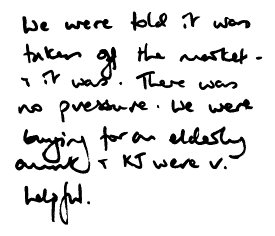 We were told it was
taken off the market -
& it was. There was
no pressure. We were
buying for an elderly
aunt & KJ were v.
helpful.